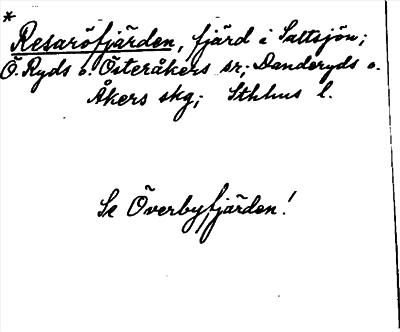 *
Resaröfjärden, fjärd i Saltsjön;
Ö. Ryds o. Österåkers sr; Danderyds o.
Åkers skg; Sthlms l.
Se Överbyfjärden!